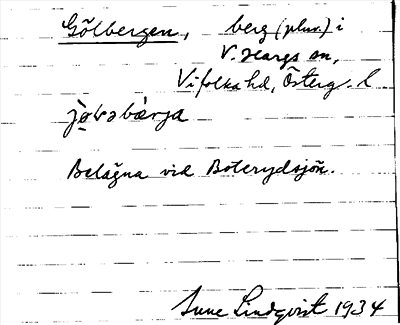 Gölbergen, berg (plur.) i
V. Hargs sn,
Vifolka hd, Österg. l
Belägna vid Boterydsjön.
Sune Lindqvist 1934